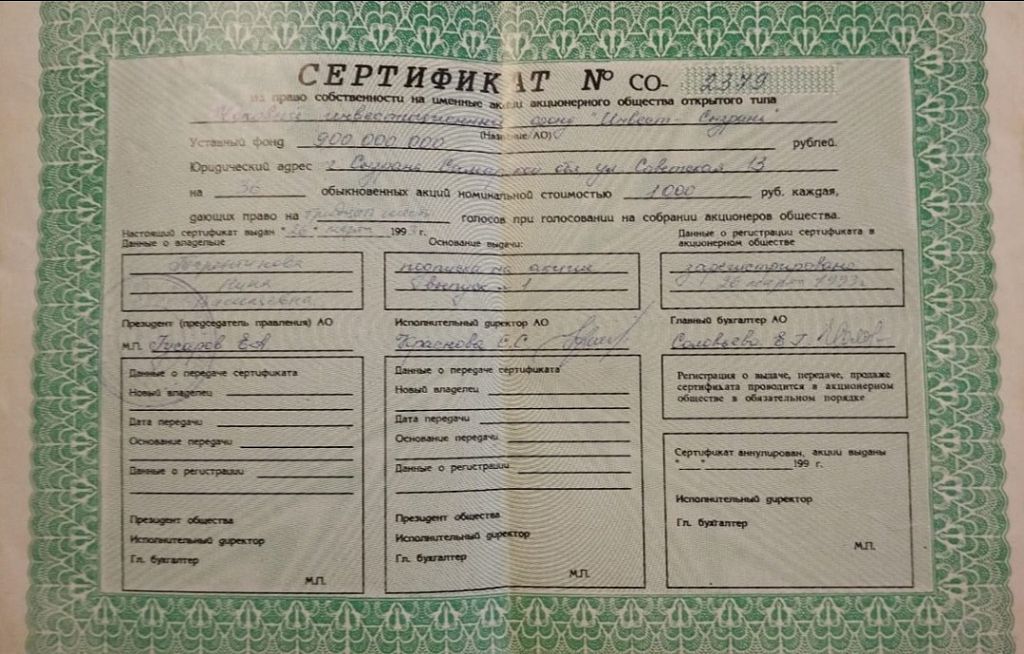 СЕРТИФИКАТ № СО- 2379
на право собственности на именные акции акционерного общества открытого типа
Чековый инвестиционный фонд "Инвест - Сызрань"
(Название АО)
Уставный фонд 900.000.000 рублей.
Юридический адрес г. Сызрань Самарской обл. ул Советская 13
на 30 обыкновенных акций номинальной стоимостью 1000 руб. каждая,
дающих право на тридцать голосов при голосовании на собрании акционеров общества.
Настоящий сертификат выдан "26" марта 1993 г.
Данные о владельце
Нина
Основание выдачи:
подписка на акции
выпуск 1
Данные о регистрации сертификата в
акционерном обществе
зарегистрировано
26 марта 1993г.
Президент (председатель правления) АО
М.П. Гусаров Е.А
Исполнительный директор АО
Краснова С.С.
Главный бухгалтер АО
Соловьева Е.Г.
Данные о передаче сертификата
Новый владелец
Дата передачи
Основание передачи
Данные о регистрации
Президент общества
Исполнительный директор
Гл. бухгалтер
М.П.
Данные о передаче сертификата
Новый владелец
Дата передачи
Основание передачи
Данные о регистрации
Президент общества
Исполнительный директор
Гл. бухгалтер
М.П.
Регистрация о выдаче, передаче, продаже
сертификата проводится в акционерном
обществе в обязательном порядке
Сертификат аннулирован, акции выданы
"__"__________199 г.
Исполнительный директор
Гл. бухгалтер
М.П.